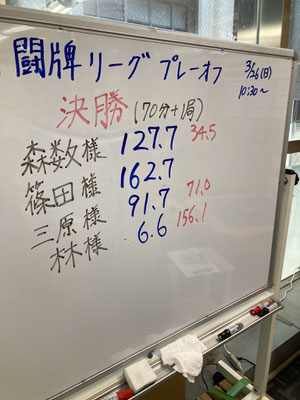 闘牌リーグ プレーオフ
3/26(日)
10:30～
決勝(70分+1局)
森数様 127.7 34.5
篠田様 162.7
三原様 91.7 71.0
林様 6.6 156.1